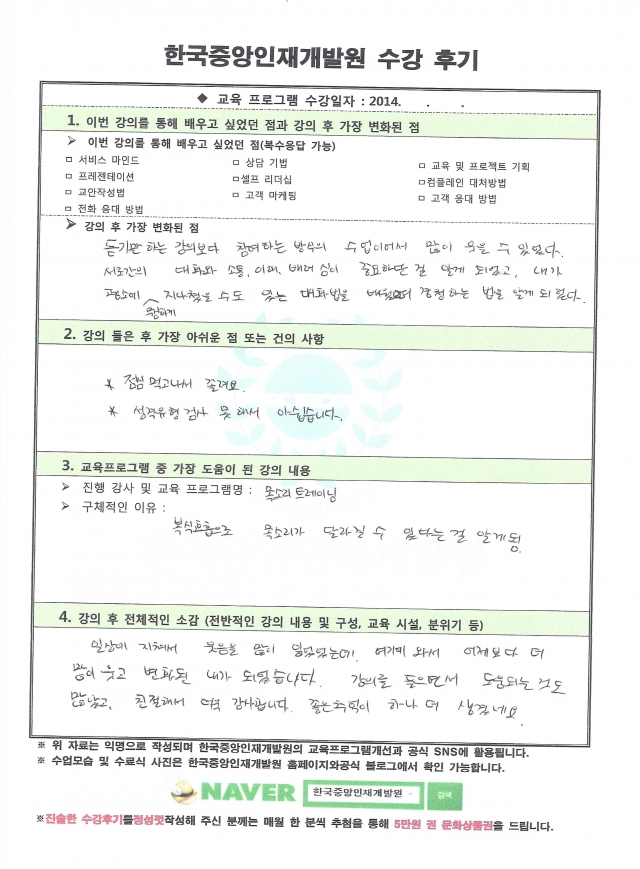 한국중앙인재개발원 수강 후기
◆ 교육 프로그램 수강일자 : 2014. . .
1. 이번 강의를 통해 배우고 싶었던 점과 강의 후 가장 변화된 점
➤ 이번 강의를 통해 배우고 싶었던 점(복수응답 가능)
□ 서비스 마인드 □ 상담 기법 □ 교육 및 프로젝트 기획
□ 프레젠테이션 □셀프 리더십 □컴플레인 대처방법
□ 교안작성법 □ 고객 마케팅 □ 고객 응대 방법
□ 전화 응대 방법
➤ 강의 후 가장 변화된 점
듣기만 하는 강의보다 참여하는 방식의 수업이어서 많이 웃을 수 있었다.
서로간의 대화와 소통, 이해, 배려 심이 중요하단 걸 알게 되었고, 내가
평소에 무심하게 지나쳤을 수도 있는 대화법을 배웠으며 경청하는 법을 알게 되었다.
2. 강의 들은 후 가장 아쉬운 점 또는 건의 사항
* 점심 먹고나서 졸려요.
* 성격유형 검사 못해서 아쉽습니다.
3. 교육프로그램 중 가장 도움이 된 강의 내용
➤ 진행 강사 및 교육 프로그램명 : 목소리 트레이닝
➤ 구체적인 이유 :
복식호흡으로 목소리가 달라질 수 있다는 걸 알게됨.
4. 강의 후 전체적인 소감 (전반적인 강의 내용 및 구성, 교육 시설, 분위기 등)
일상에 지쳐서 웃음을 많이 잃었었는데, 여기에 와서 어제보다 더
많이 웃고 변화된 내가 되었습니다. 강의를 들으면서 도움되는것도
많았고, 친절해서 더욱 감사합니다. 좋은추억이 하나 더 생겼네요.
※ 위 자료는 익명으로 작성되며 한국중앙인재개발원의 교육프로그램개선과 공식 SNS에 활용됩니다.
※ 수업모습 및 수료식 사진은 한국중앙인재개발원 홈페이지와공식 블로그에서 확인 가능합니다.
NAVER 한국중앙인재개발원 검색
※진솔한 수강후기를정성껏작성해 주신 분께는 매월 한 분씩 추첨을 통해 5만원 권 문화상품권을 드립니다.